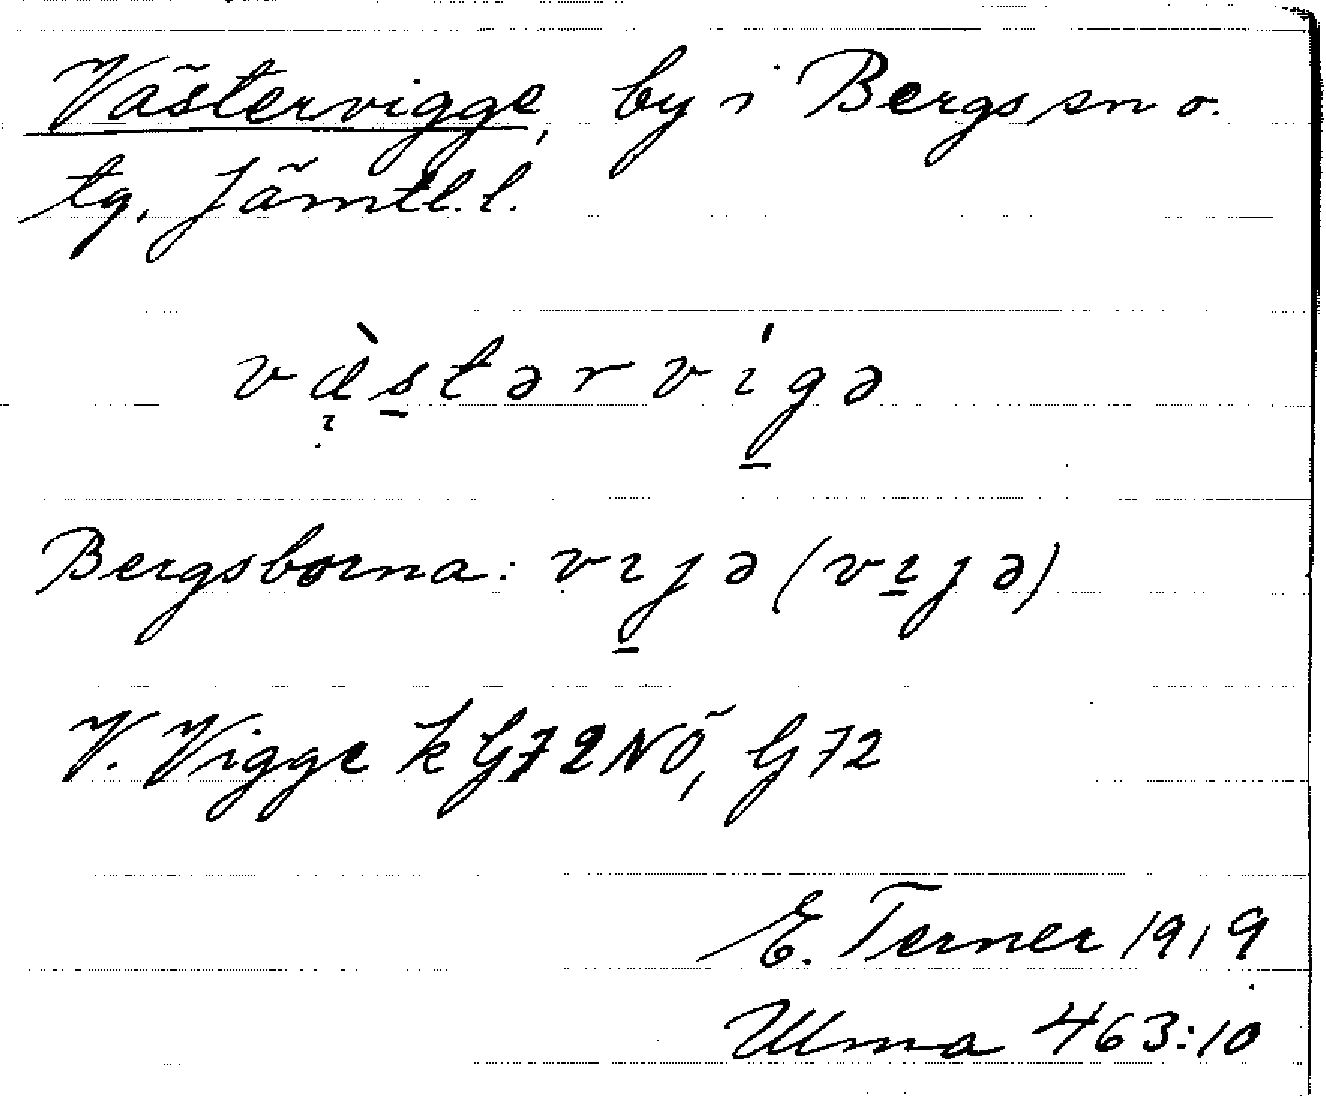 Västervigge, by i Bergs sn o.
tg, Jämtl.l.
væ̀s̲tərvíg̲ə
Bergsborna: vıȷ̲ə (vı̲ȷə)
V. Vigge k G72NÖ, G72
E. Terner 1919
Ulma 463:10